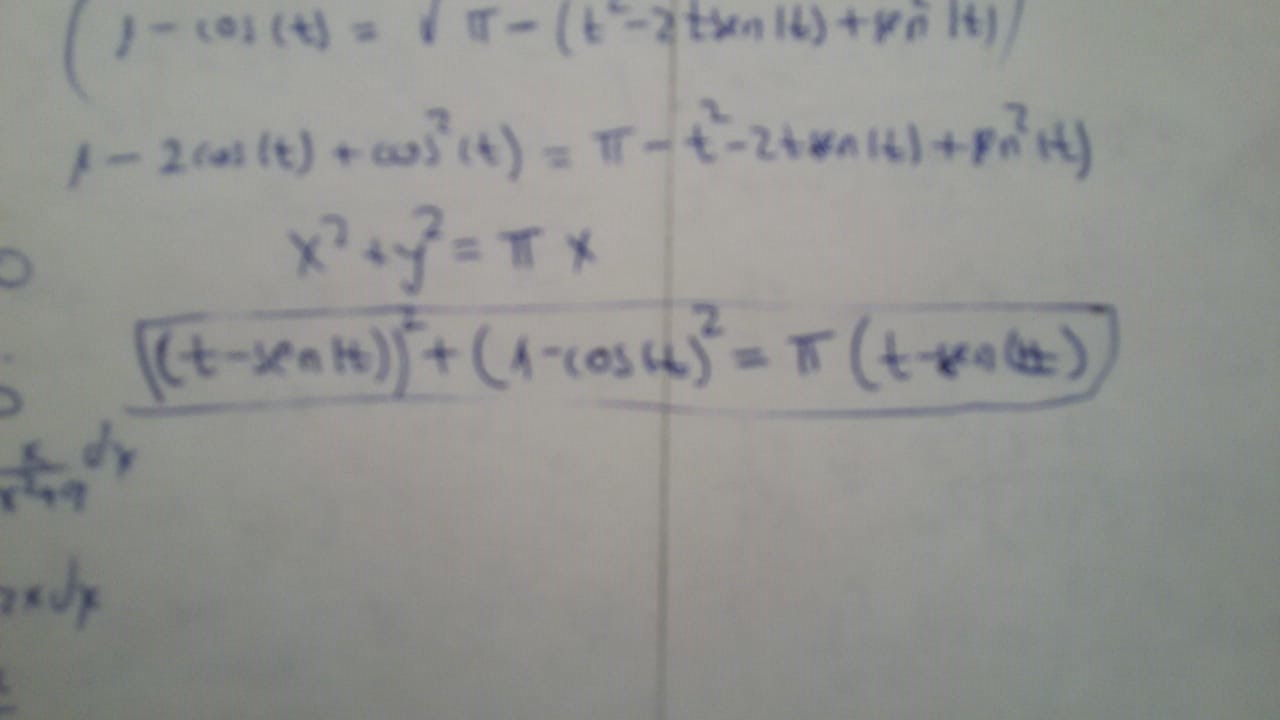 1 - cos(t) = √π - (t² - 2tsen(t) + sen²(t))
1 - 2cos(t) + cos²(t) = π - t² - 2tsen(t) + sen²(t)
x² + y² = π x
(t - sen(t))² + (1 - cos(t))² = π (t - sen(t))
dx
2xdx